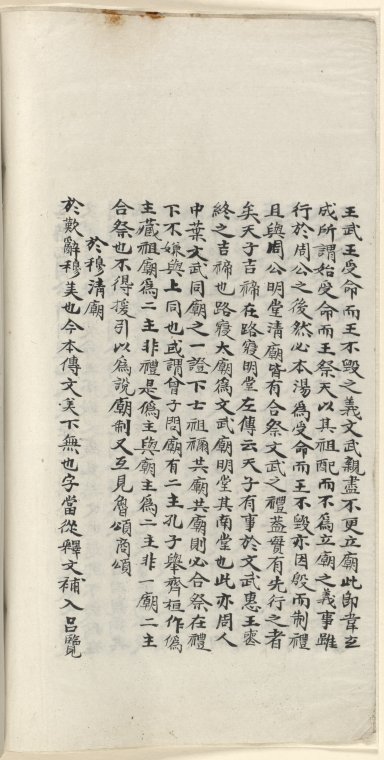 王武王受命而王不毀之義文武親盡不更立廟此即韋玄
成所謂始受命而王祭天以其祖配而不為立廟之義事雖
行於周公之後然必本湯為受命而王不毀亦因殷而制禮
且與周公明堂清廟皆有合祭文武之禮蓋實有先行之者
矣天子吉禘在路寢明堂左傳云天子有事於文武惠王喪
終之吉禘也路寢大廟為文武廟明堂其南堂也此亦周人
中葉文武同廟之一證下士祖禰共廟共廟則必合祭在禮
下不嫌與上同也或謂曾子問廟有二主孔子舉齊桓作偽
主藏祖廟為二主非禮是偽主與廟主為二主非一廟二主
合祭也不得援引以為說廟制又互見魯頌商頌
於穆清廟
於歎辭穆美也今本傳文美下無也字當從釋文補入呂覽